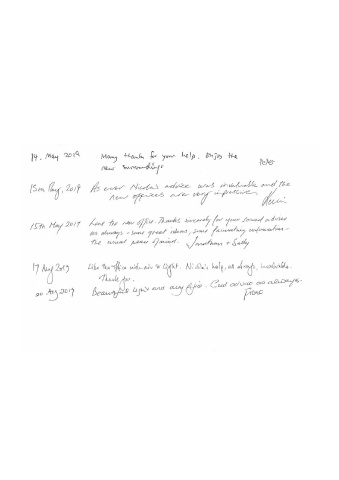 14. May 2019 Many thanks for your help. Enjoy the
new surroundings Peter
15th May, 2019 As ever Nicola's advice was invaluable and the
new offices are very impressive.
Kevin
15th May 2019 Love the new office. Thanks sincerely for your sound advice
as always - some great ideas, some
the usual peace of mind. Jonathan + Sally
17 2019 Like the office with air & light. Nicola's help, as always, invaluable.
Thank you.
2019 Beautiful light and airy office. Good advice as always.